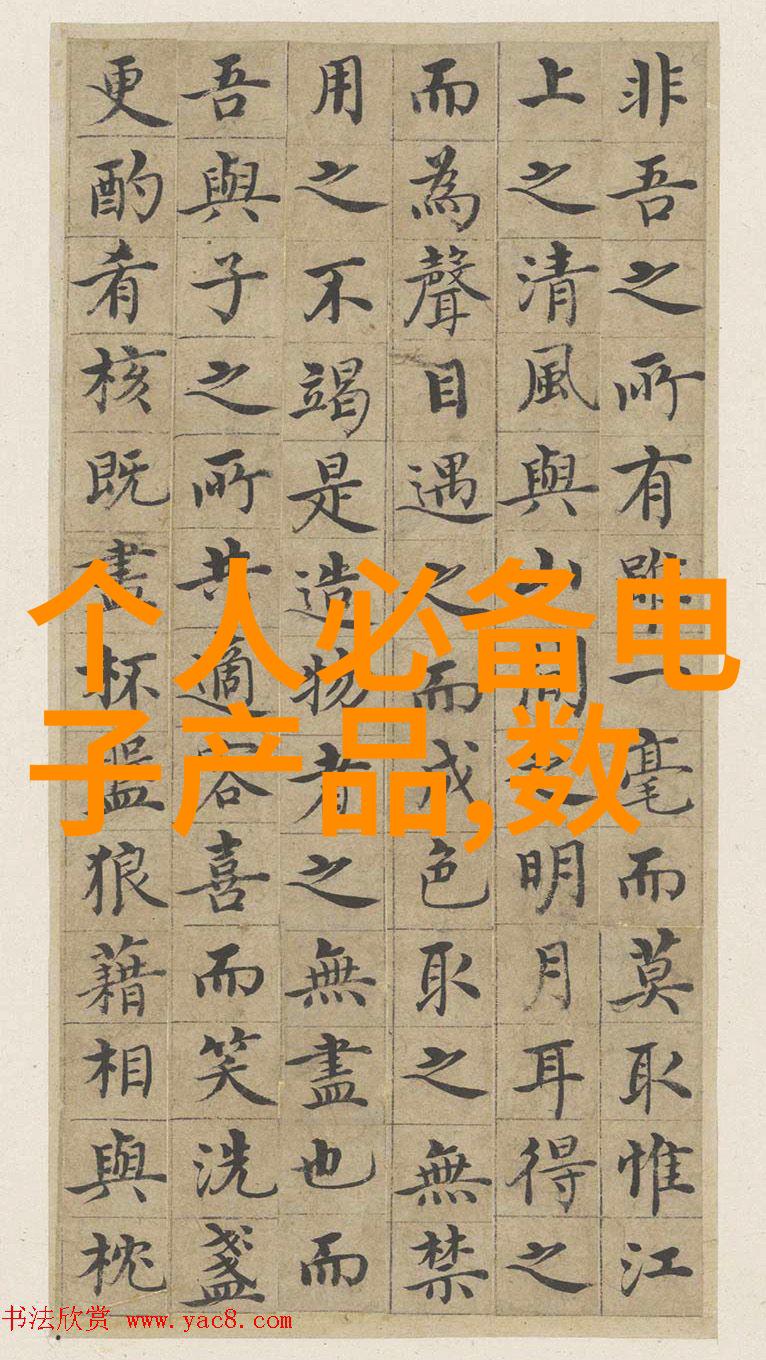 非吾之所有雖一毫而莫取惟江
上之清風與山間之明月耳得之
而為聲目遇之而成色取之無禁
用之不竭是造物者之無盡也而
吾與子之所共適客喜而笑洗盞
更酌肴核既盡杯盤狼藉相與枕
个人必备电
子产品,数
书法欣赏 www.yac8.com